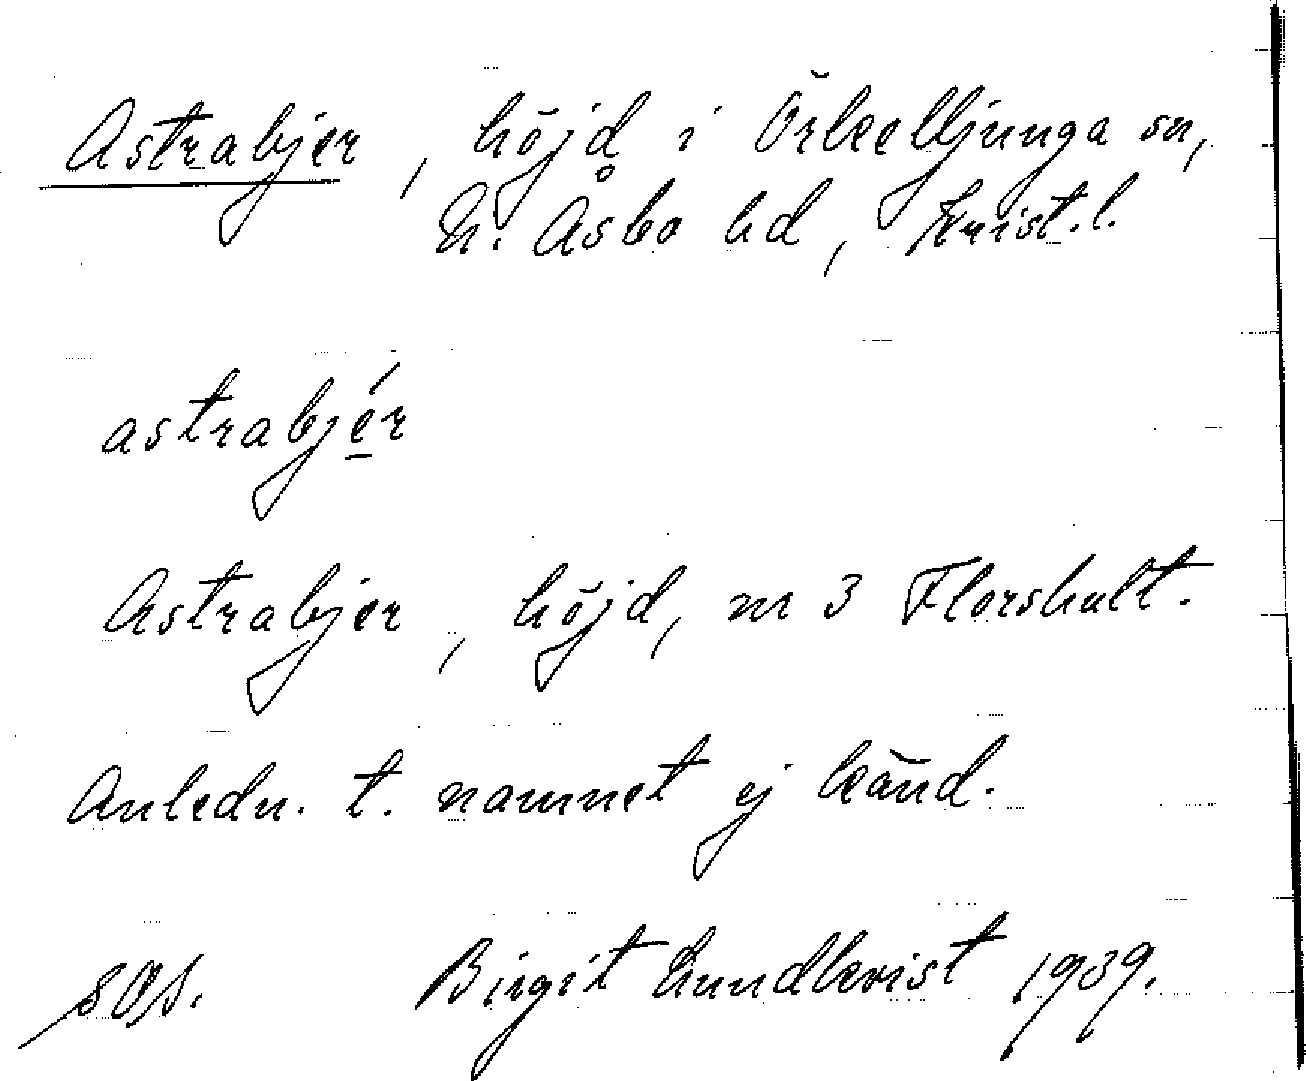 Astrabjer, höjd i Örkelljunga sn,
N. Åsbo hd, Krist. l.
astrabjér
Astrabjer, höjd, nr 3 Florshult.
Anledn. t. namnet ej känd.
Birgit Lundkvist 1939.